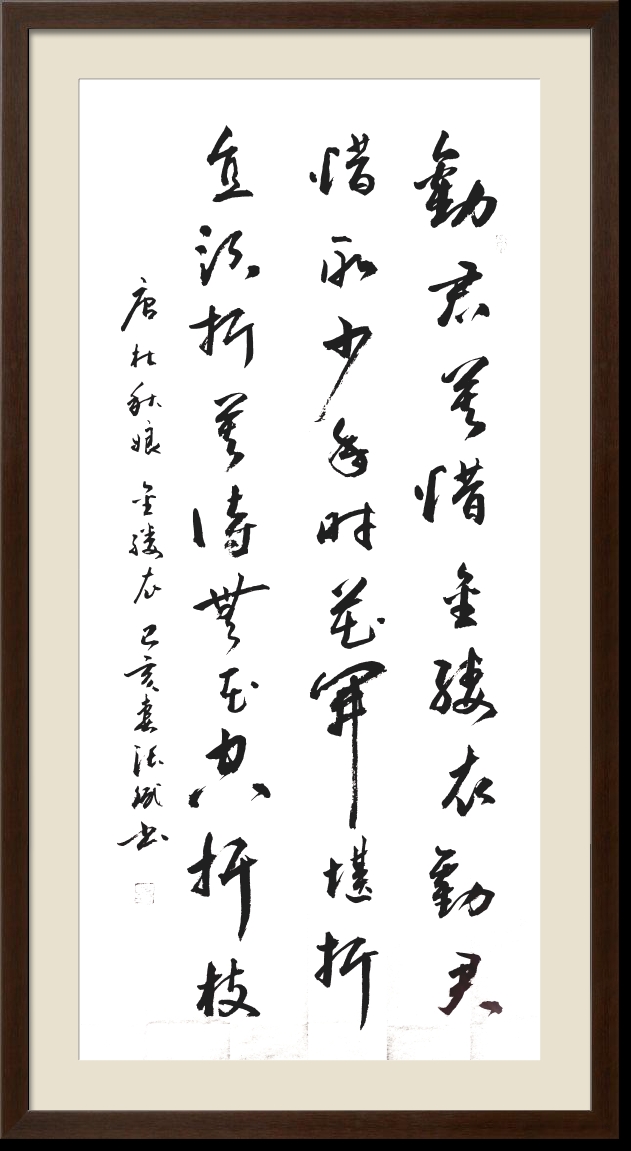 勸君莫惜金縷衣勸君
惜取少年时花開堪折
直须折莫待無花空折枝
唐杜秋娘金縷衣己亥春书